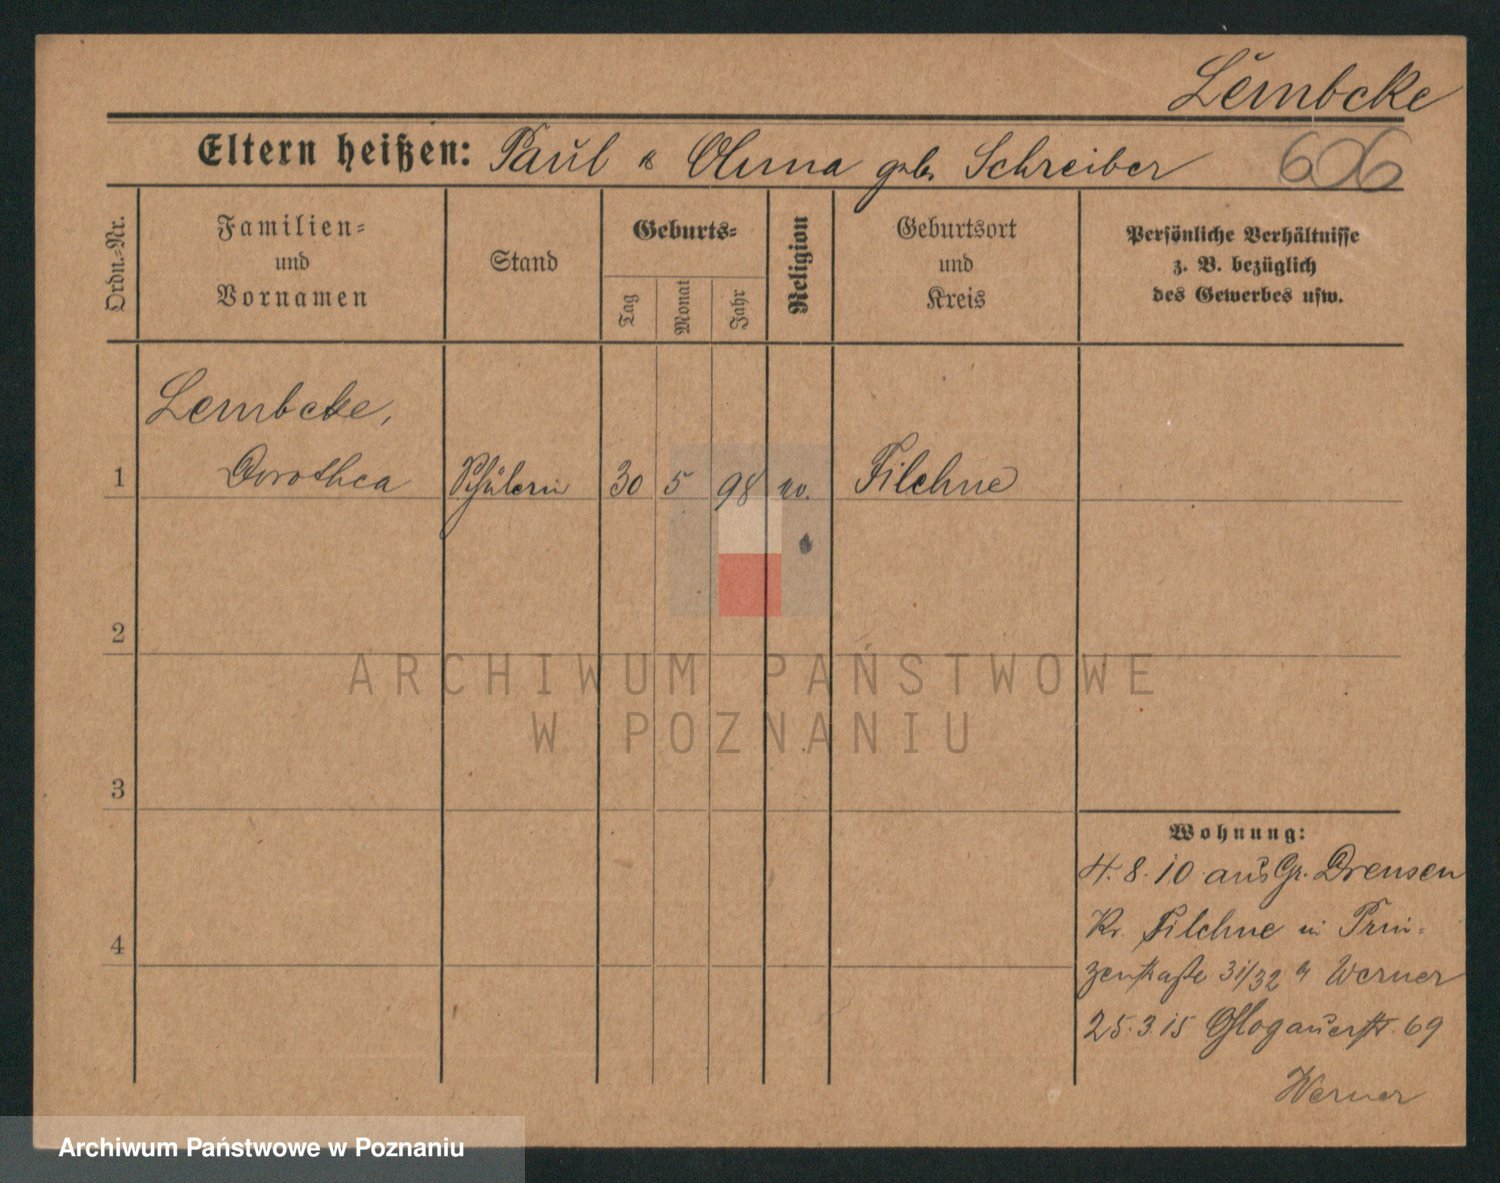 Lembcke
Eltern heißen: Paul u Anna geb. Schreiber
606
Ordn.-Nr.
Familien-
und
Vornamen
Stand
Geburts-
Tag
Monat
Jahr
Religion
Geburtsort
und
Kreis
Persönliche Verhältnisse
z. B. bezüglich
des Gewerbes usw.
Lembcke,
1 Dorothea Schülerin 30 5 98 ev. Filehne
2
ARCHIWUM PAŃSTWOWE
W POZNANIU
3
Wohnung:
4. 8. 10 aus Gr. Drensen
Kr. Filehne in Prin-
4
zenstraße 31/32 b Werner
25. 3. 15 Glogauerstr. 69
Werner
Archiwum Państwowe w Poznaniu